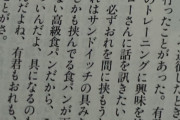 行ったことがあった。有
のトレーニングに興味を
ーさんに話を訊きたい
必ずおれを間に挟もう
れはサンドイッチの具み
かも挟んでる食パンが
ない高級食パンだから、
いんだよ、具になるの
だよね、有君もおれも
とがさ。